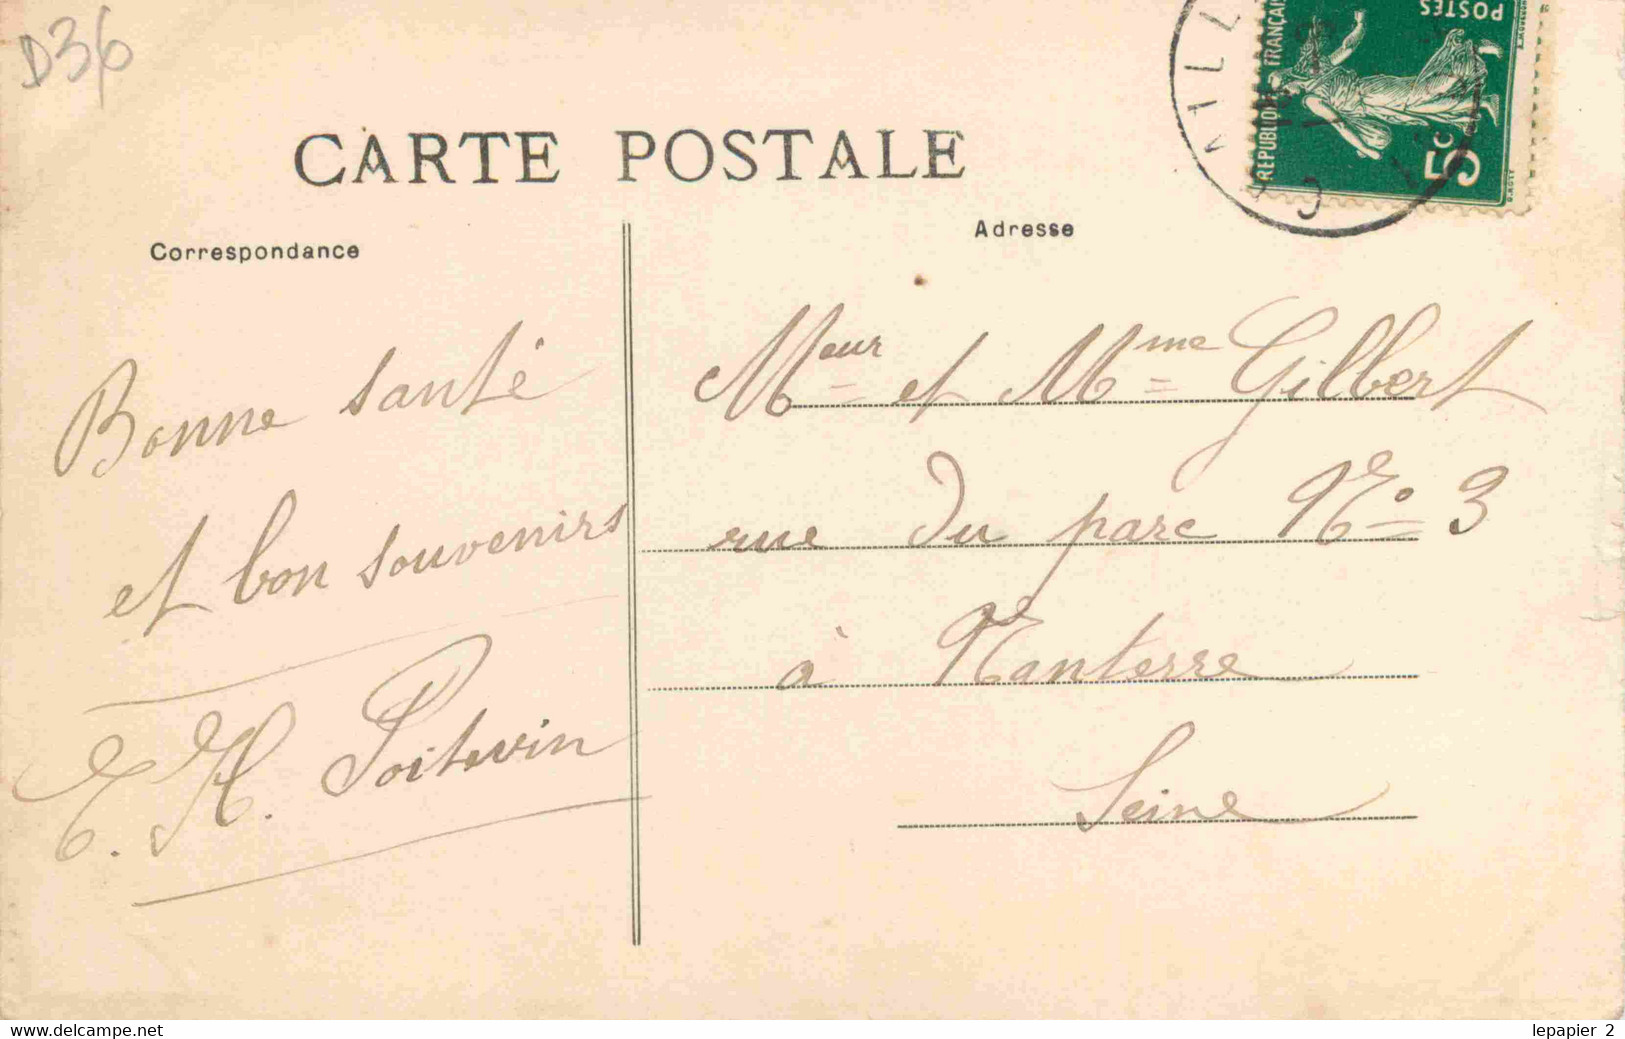 D36
CARTE POSTALE
Correspondance
Adresse
RÉPUBLIQUE FRANÇAISE
POSTES
5c
Bonne santé
et bon souvenirs
E. H. Poitevin
Meur et Mme Gilbert
rue du parc No 3
à Nanterre
Seine
www.delcampe.net
lepapier 2